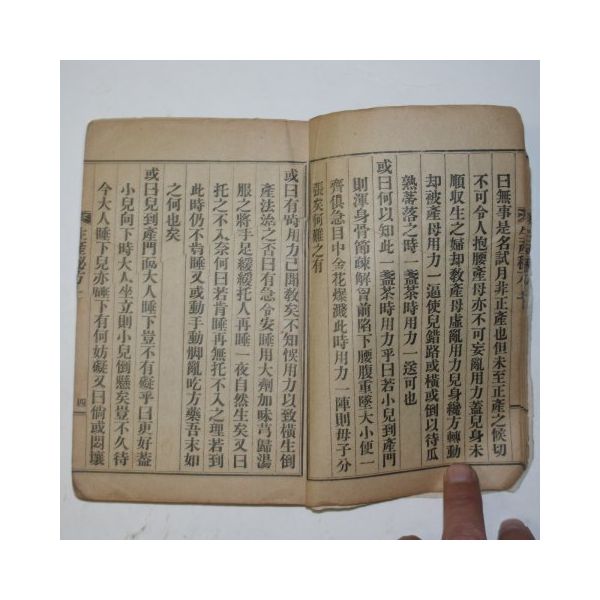 曰無事是名試月非正產也但未至正產之候切
不可令人抱腰產母亦不可妄亂用力蓋兒身未
順收生之婦却敎產母虛亂用力兒身纔方轉動
却被產母用力一逼使兒錯路或橫或倒以待瓜
熟蒂落之時一盞茶時用力一送可也
或曰何以知此一盞茶時用力乎曰若小兒到產門
則渾身骨節疎解胷前陷下腰腹重墜大小便一
齊俱急目中金花爆濺此時用力一陣則母子分
張矣何難之有
或曰有時用力已聞敎矣不知悞用力以致橫生倒
產法治之否曰有急令安睡用大劑加味芎歸湯
服之將手足緩緩托人再睡一夜自然生矣又曰
托之不入奈何曰若肯睡再無托不入之理若到
此時仍不肯睡又或動手動脚亂吃方藥吾末如
之何也矣
或曰兒到產門而大人睡下豈不有礙乎曰更好蓋
小兒向下時大人坐立則小兒倒懸矣豈不久待
今大人睡下兒亦睡下有何妨礙又曰倘或悶壞
四